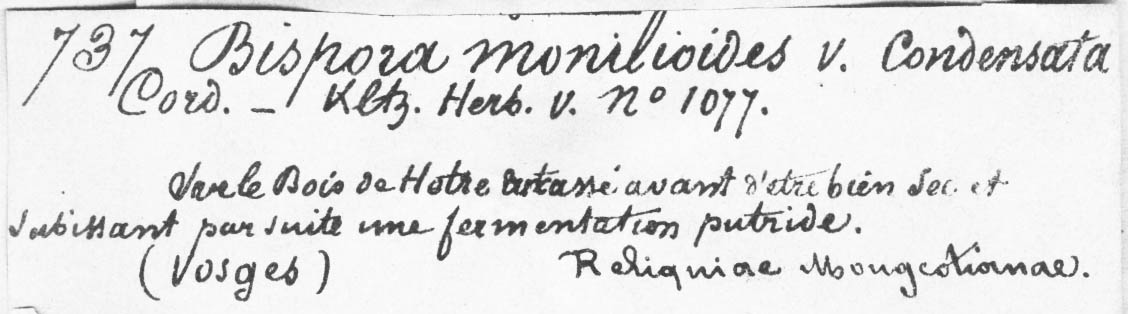 737 Bispora monilioides v. Condensata
Cord. – Kltz. Herb. v. No 1077.
Sur le Bois de Hetre entassé avant d'etre bien sec et
subissant par suite une fermentation putride.
(Vosges) Reliquiae Mougeotianae.